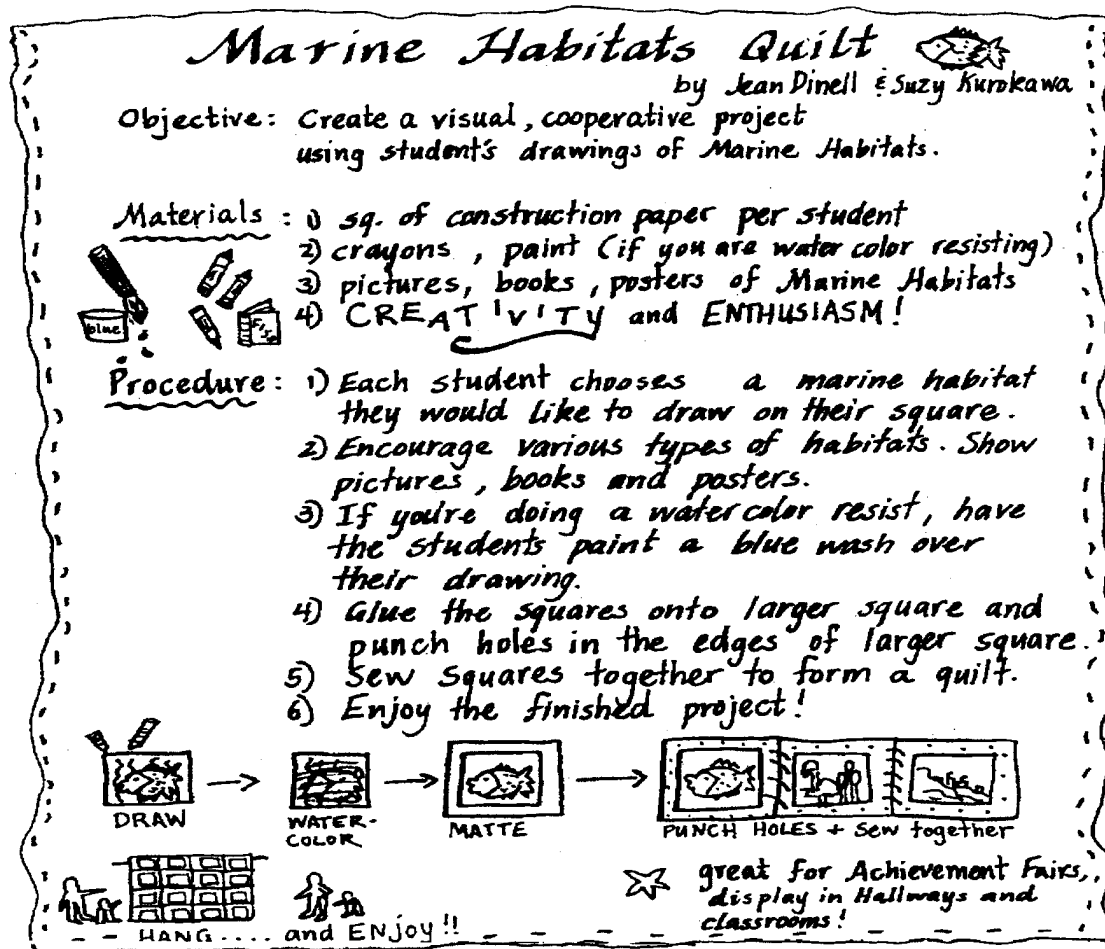 Marine Habitats Quilt
by Jean Dinell & Suzy Kurokawa
Objective: Create a visual, cooperative project
using student's drawings of Marine Habitats.
Materials: 1) sq. of construction paper per student
2) crayons, paint (if you are water color resisting)
3) pictures, books, posters of Marine Habitats
4) CREATIVITY and ENTHUSIASM!
blue
FISH
Procedure: 1) Each student chooses a marine habitat
they would like to draw on their square.
2) Encourage various types of habitats. Show
pictures, books and posters.
3) If you're doing a watercolor resist, have
the students paint a blue wash over
their drawing.
4) Glue the squares onto larger square and
punch holes in the edges of larger square.
5) Sew squares together to form a quilt.
6) Enjoy the finished project!
DRAW
WATER-
COLOR
MATTE
PUNCH HOLES + Sew together
great for Achievement Fairs,
display in Hallways and
classrooms!
HANG.... and ENJoy!!